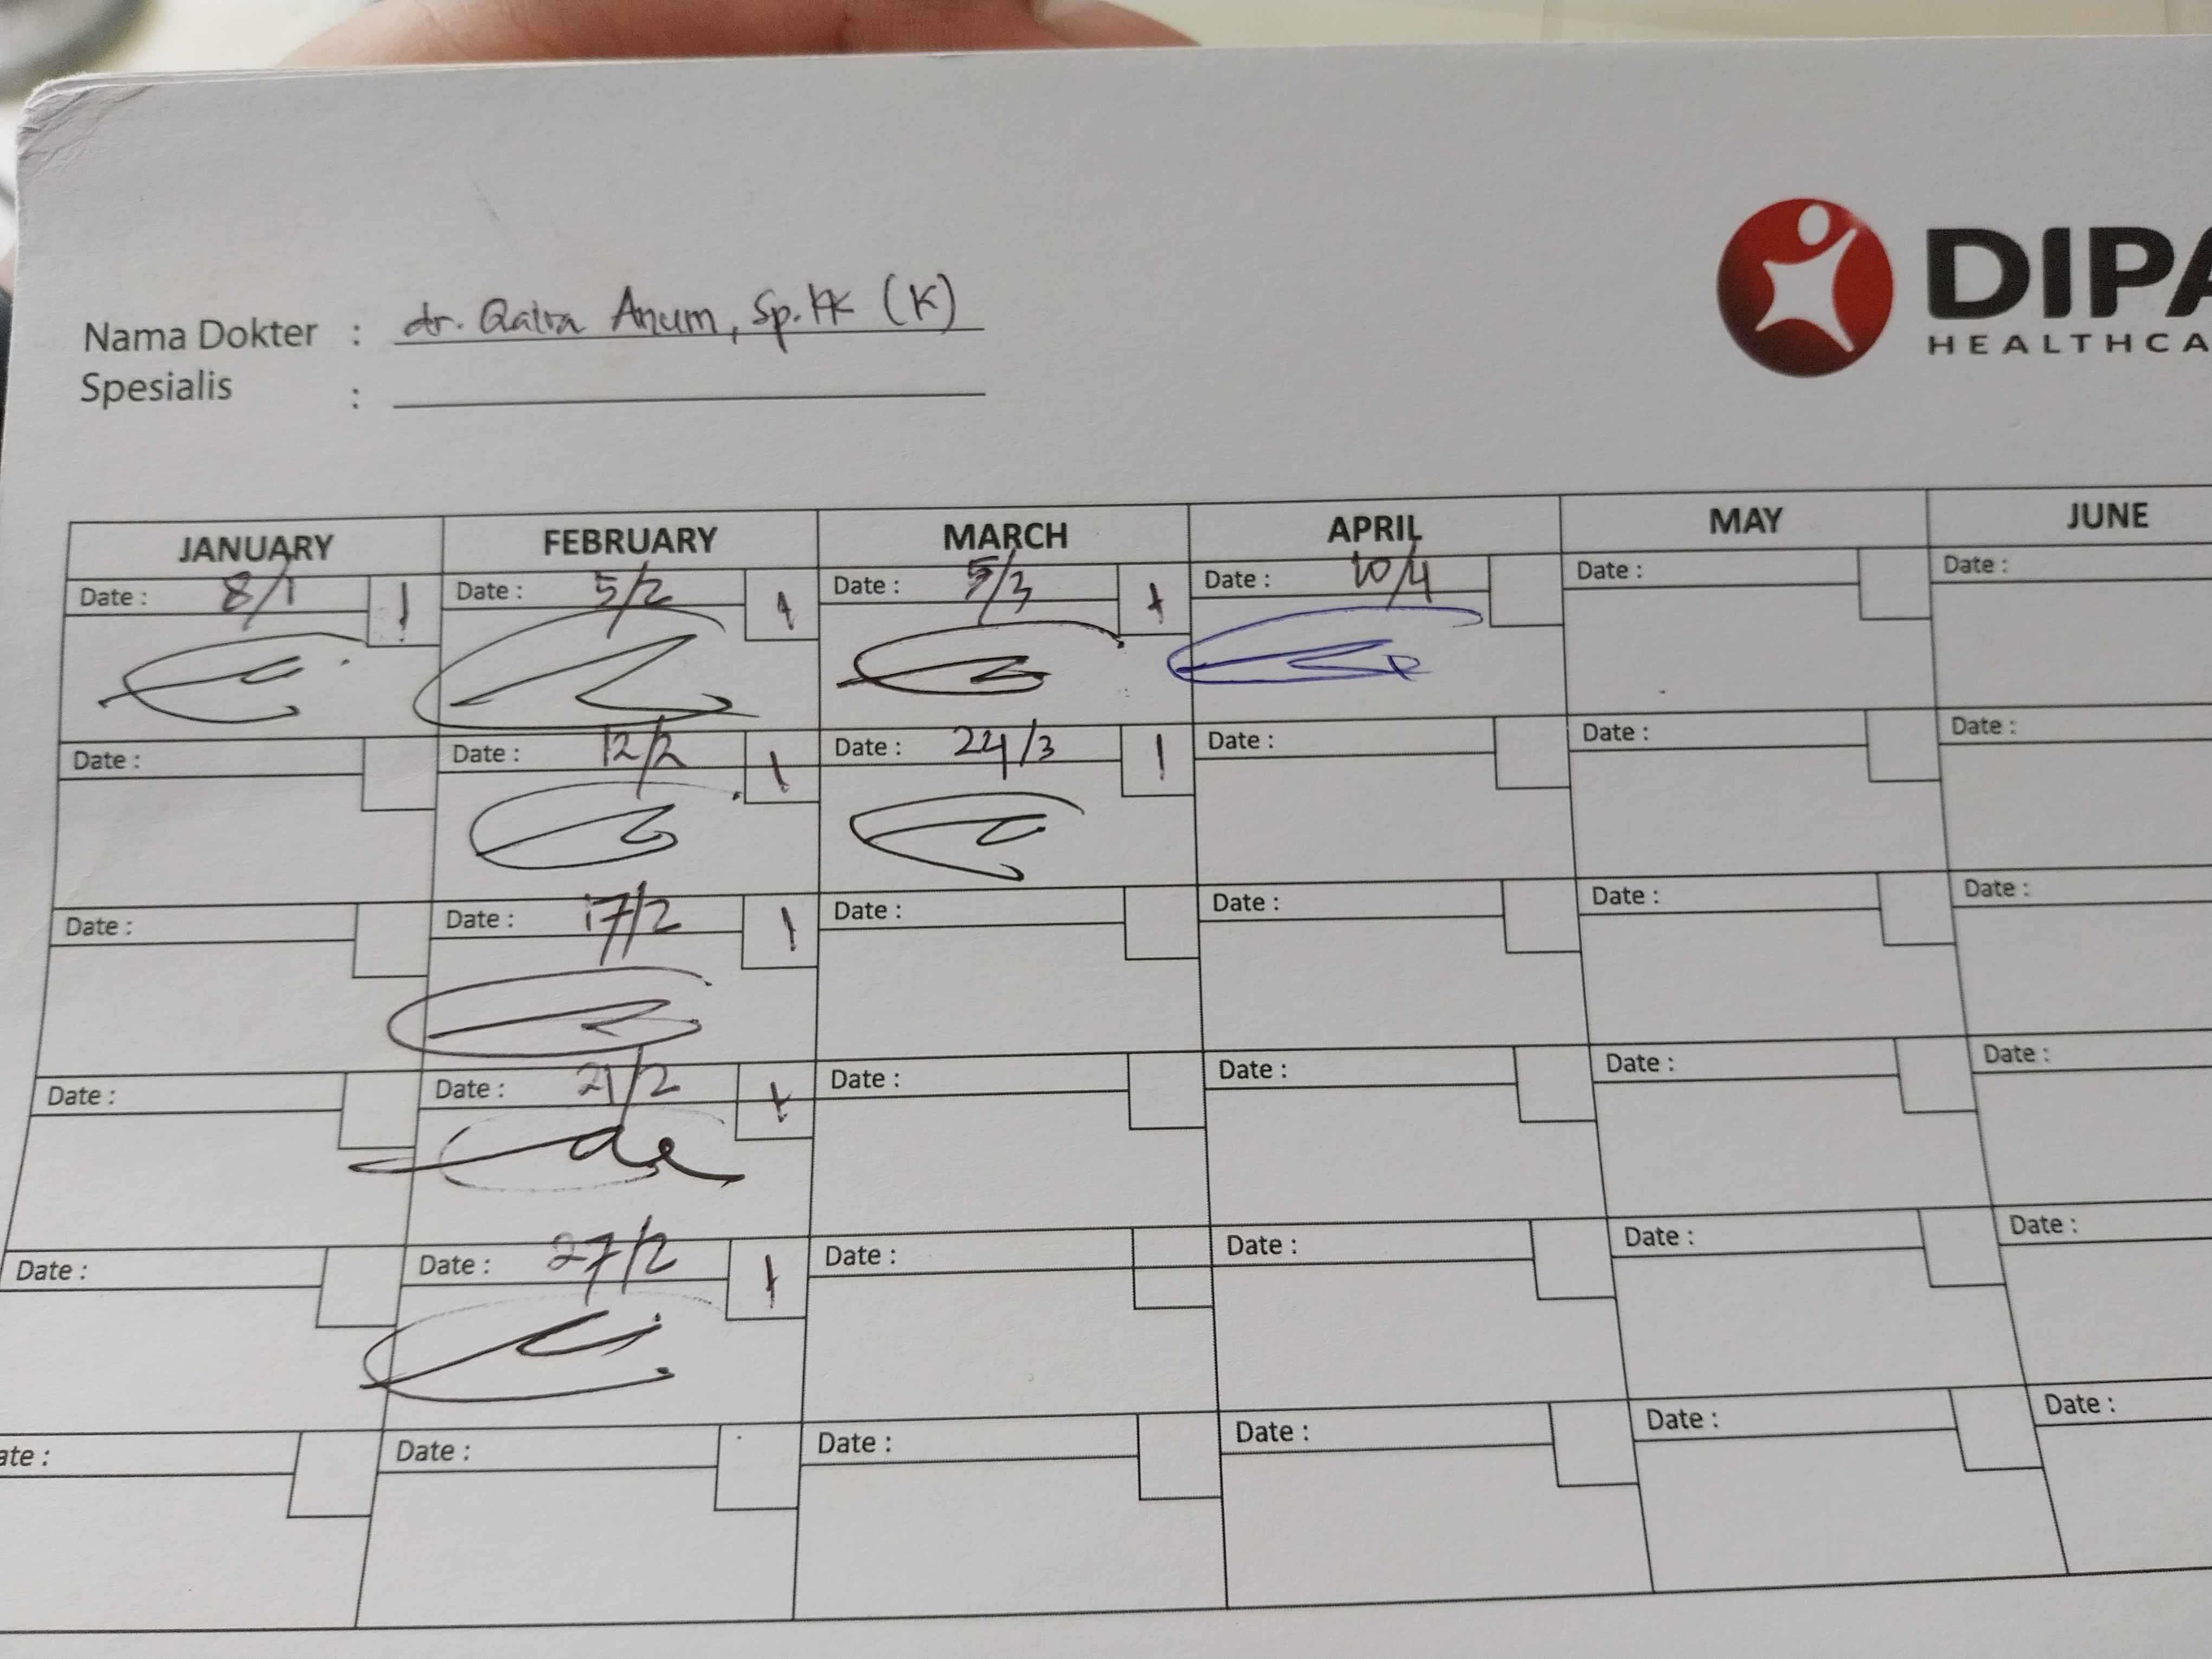 DIPA
HEALTHCA
Nama Dokter : dr. Qaira Anum, Sp.KK (K)
Spesialis :
JANUARY FEBRUARY MARCH APRIL MAY JUNE
Date : 8/1 1 Date : 5/2 1 Date : 5/3 1 Date : 10/4 Date : Date :
Date : Date : 12/2 1 Date : 24/3 1 Date : Date : Date :
Date : Date : 17/2 1 Date : Date : Date : Date :
Date : Date : 21/2 1 Date : Date : Date : Date :
Date : Date : 27/2 1 Date : Date : Date : Date :
ate : Date : Date : Date : Date : Date :